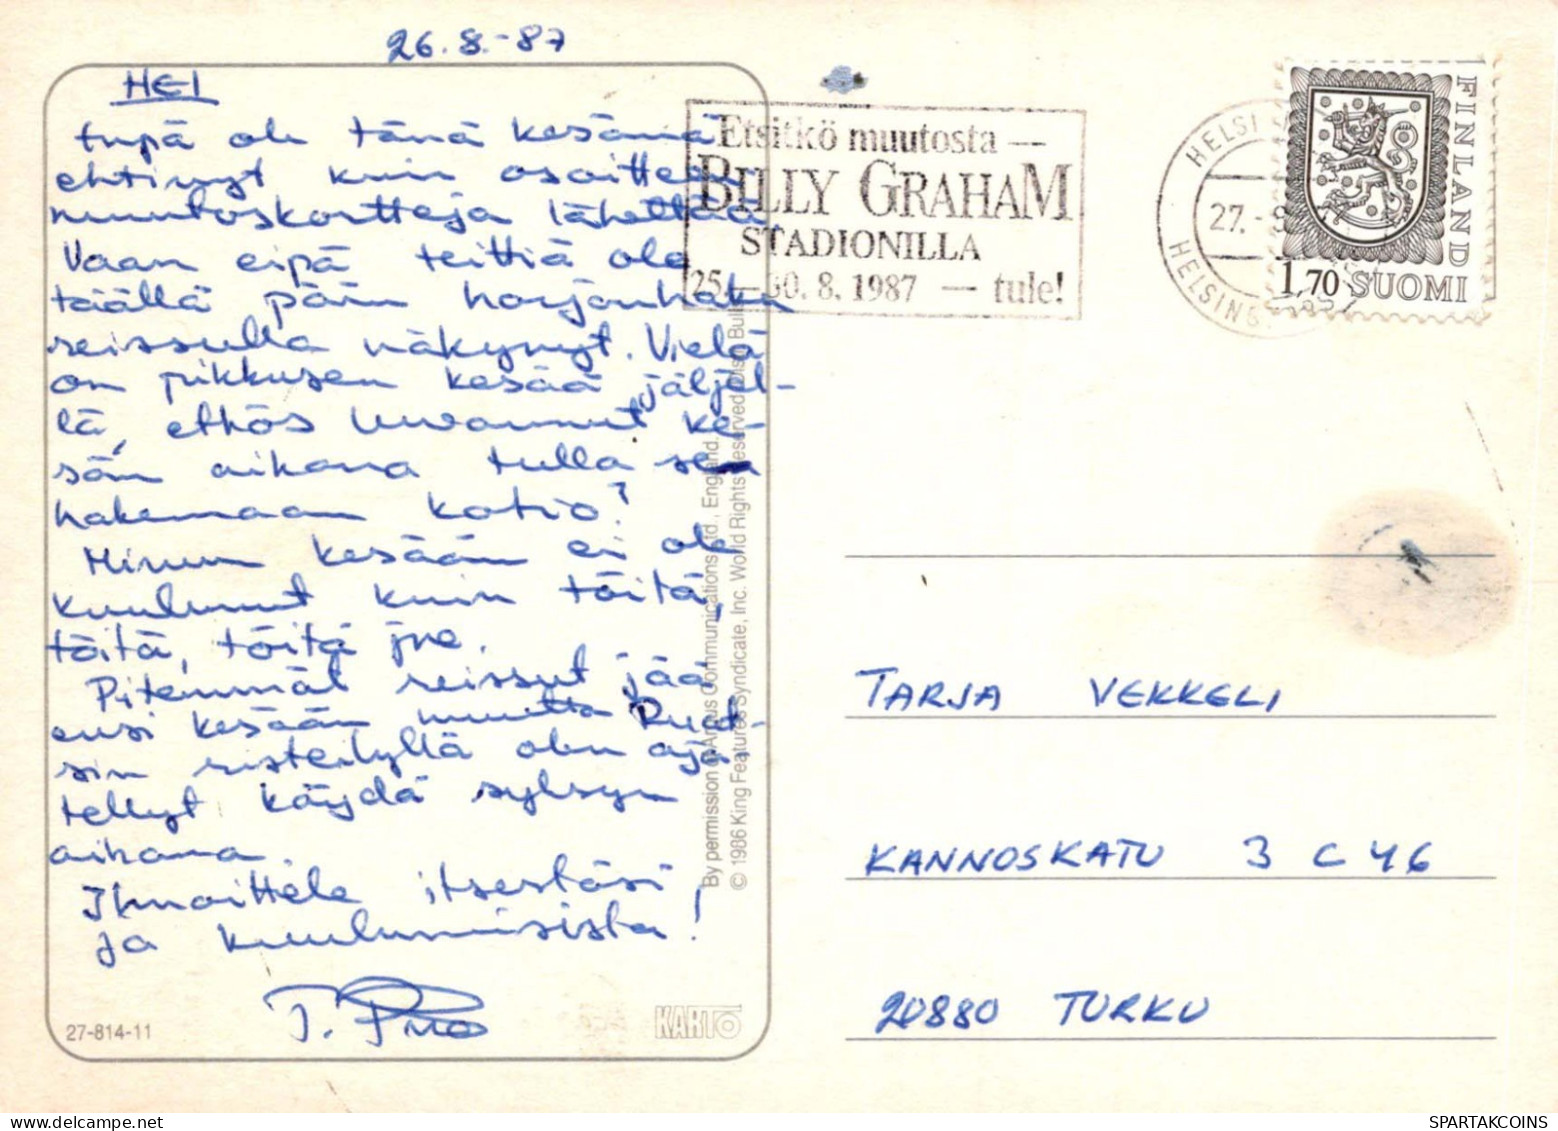 26.8.-87
HEI
Enpä ole tänä kesänä
ehtinyt kuin osoitteen
muutoskortteja lähettää
Vaan eipä teittiä ole
täällä päin
reissulla näkynyt. Vielä
on pikkusen kesää jäljel-
lä, ethös luvannut ke-
sän aikana tulla sen
hakemaan kotio?
Minun kesään ei ole
kuulunut kuin töitä,
töitä, töitä jne.
Pitemmät reissut jää
ensi kesään mutta Ruot-
sin risteilyllä olen aja-
tellyt käydä syksyn
aikana.
Ilmoittele itsestäsi
ja kuulumisista!
27-814-11
KARTO
By permission Argus Communications Ltd., England.
© 1986 King Features Syndicate, Inc. World Rights Reserved. Distr. Bulls
Etsitkö muutosta —
BILLY GRAHAM
STADIONILLA
25.—30.8.1987 — tule!
HELSI
27.-8
HELSING
FINLAND
1,70 SUOMI
TARJA VEKKELI
KANNOSKATU 3 C 46
20880 TURKU
SPARTAKCOINS.COM